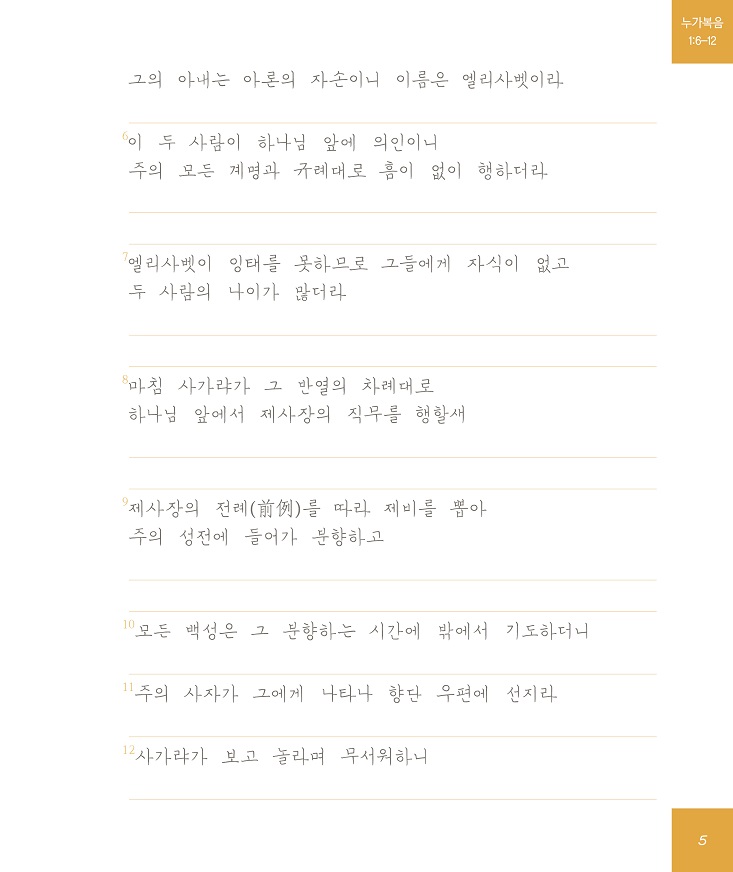 누가복음
1:6–12
그의 아내는 아론의 자손이니 이름은 엘리사벳이라
6이 두 사람이 하나님 앞에 의인이니
주의 모든 계명과 규례대로 흠이 없이 행하더라
7엘리사벳이 잉태를 못하므로 그들에게 자식이 없고
두 사람의 나이가 많더라
8마침 사가랴가 그 반열의 차례대로
하나님 앞에서 제사장의 직무를 행할새
9제사장의 전례(前例)를 따라 제비를 뽑아
주의 성전에 들어가 분향하고
10모든 백성은 그 분향하는 시간에 밖에서 기도하더니
11주의 사자가 그에게 나타나 향단 우편에 선지라
12사가랴가 보고 놀라며 무서워하니
5